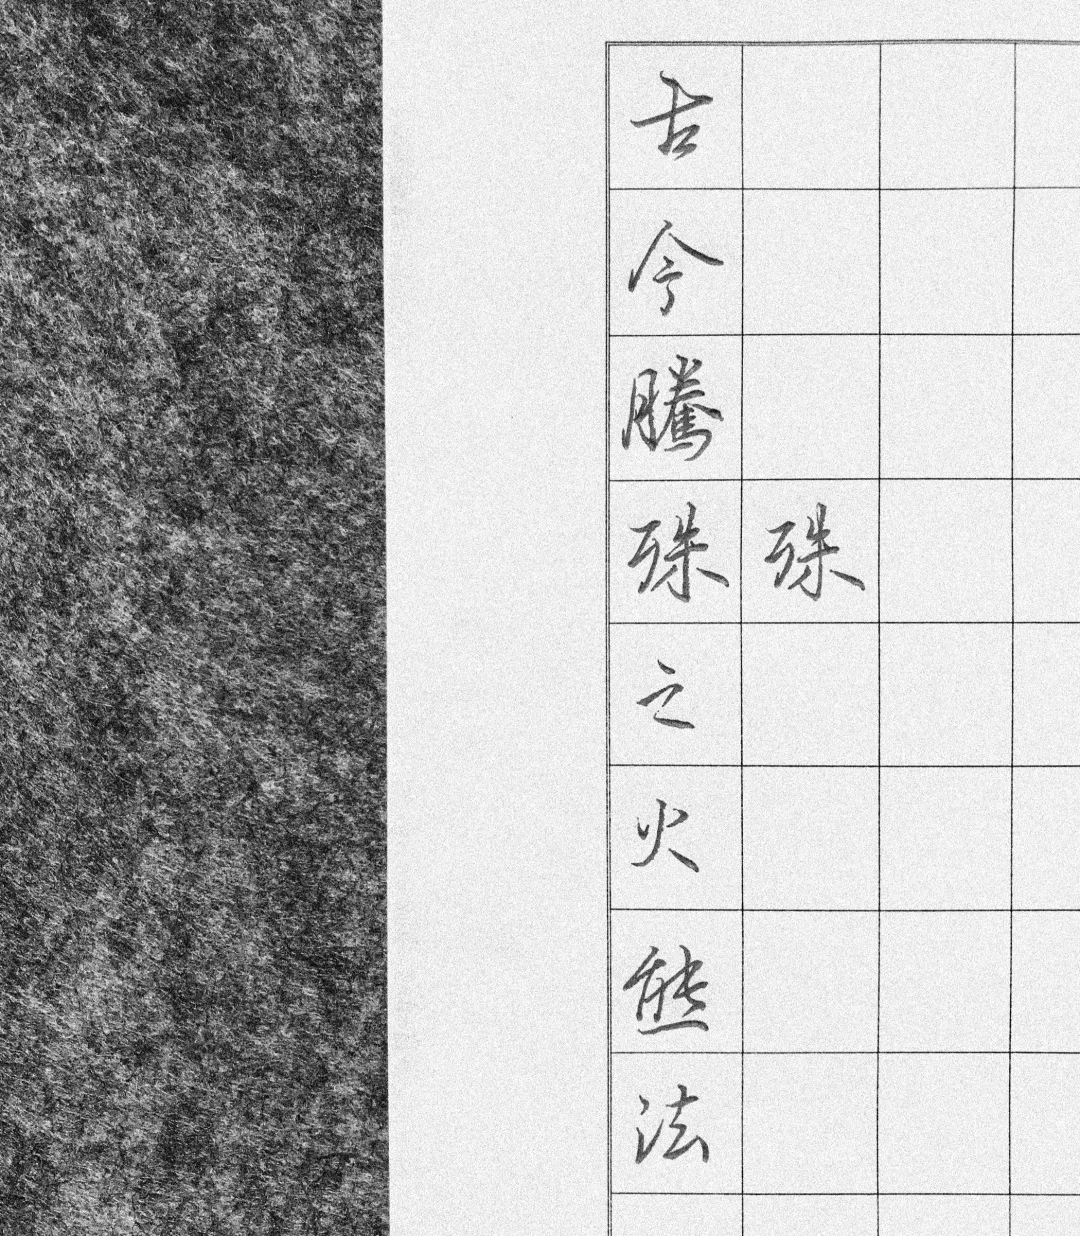 古今騰殊之火熊法
殊